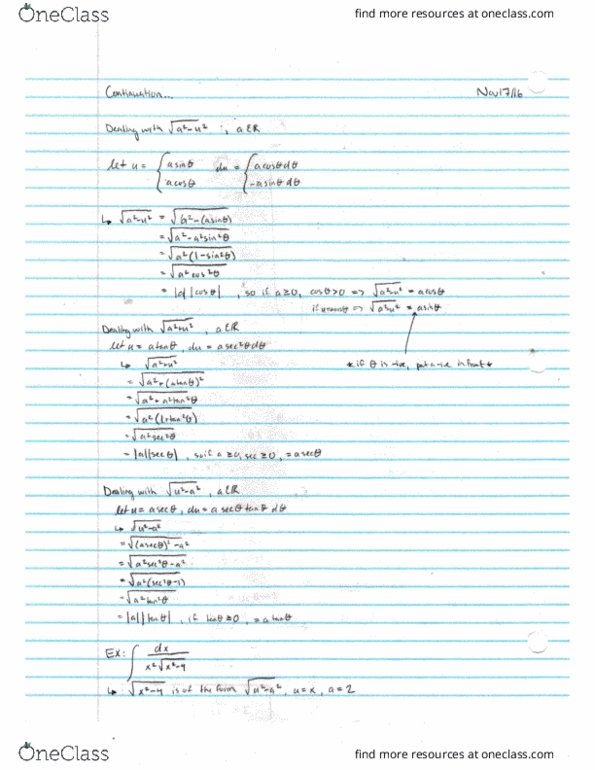 OneClass
find more resources at oneclass.com
Continuation... Nov17/16
Dealing with √a²-u² , a∈ℝ
let u = { asinθ du = { acosθdθ
acosθ -asinθ dθ
↳ √a²-u² = √a²-(asinθ)
= √a²-a²sin²θ
= √a²(1-sin²θ)
= √a²cos²θ
= |a||cosθ| , so if a≥0, cosθ>0 => √a²-u² = acosθ
if u=acosθ => √a²-u² = asinθ
Dealing with √a²+u² , a∈ℝ
let u = atanθ, du = asec²θdθ
* if θ is -ive, put a -ive in front *
↳ √a²+u²
= √a²+(atanθ)²
= √a²+a²tan²θ
= √a²(1+tan²θ)
= √a²sec²θ
= |a||secθ| , so if a≥0, sec≥0, = asecθ
Dealing with √u²-a² , a∈ℝ
let u = asecθ, du = asecθtanθ dθ
↳ √u²-a²
= √(asecθ)²-a²
= √a²sec²θ-a²
= √a²(sec²θ-1)
= √a²tan²θ
= |a||tanθ| , if tanθ≥0, = atanθ
Ex: ∫ dx
x²√x²-4
↳ √x²-4 is of the form √u²-a², u=x, a=2
OneClass
find more resources at oneclass.com